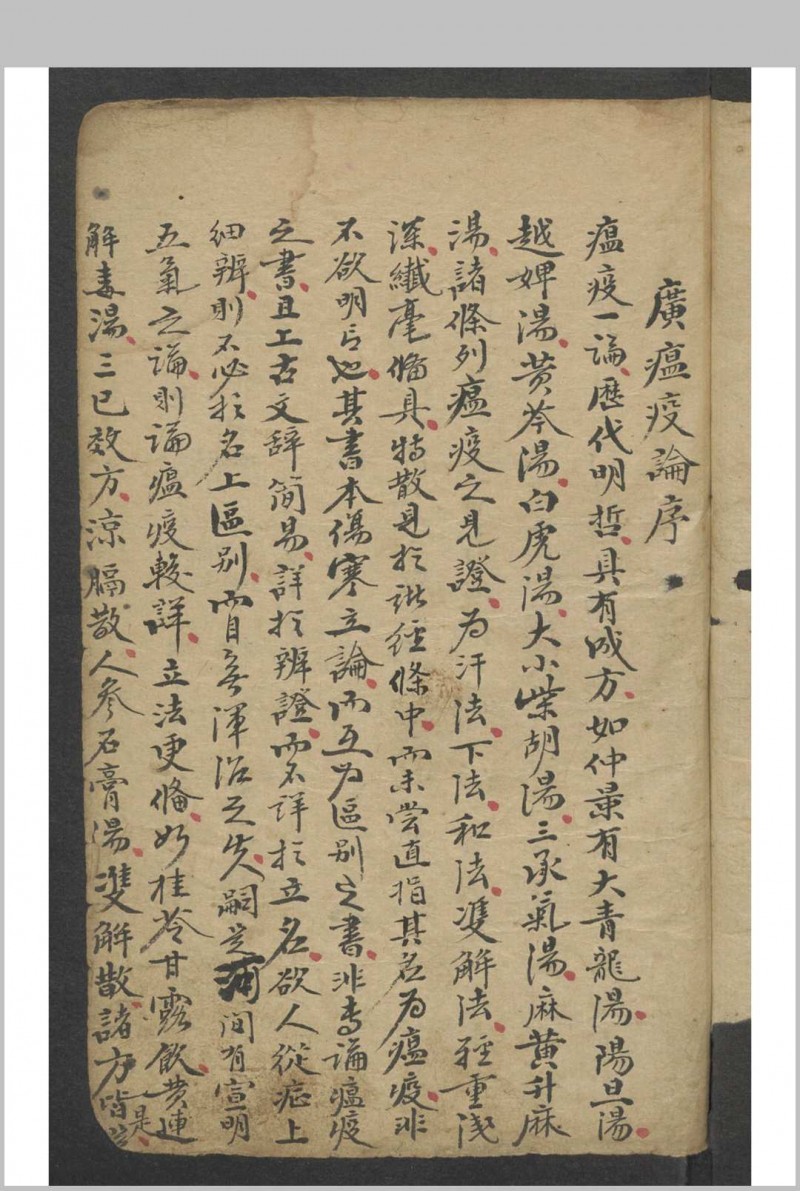 廣瘟疫論序
瘟疫一論歷代明哲具有成方如仲景有大青龍湯陽旦湯
越婢湯黃芩湯白虎湯大小柴胡湯三承氣湯麻黃升麻
湯諸條列瘟疫之見證為汗法下法和法雙解法輕重淺
深纖毫俻具特散見於諸經條中而未嘗直指其名為瘟疫非
不欲明言也其書本傷寒立論而互為區别之書非專論瘟疫
之書且上古文辞简易詳於辨證而不詳於立名欲人從症上
细辨則不必於名上區别而自無渾治之失嗣是河间有宣明
五氣之論則論瘟疫較詳立法更俻如桂苓甘露飲黄連
解毒湯三已效方涼膈散人參石膏湯雙解散諸方皆是